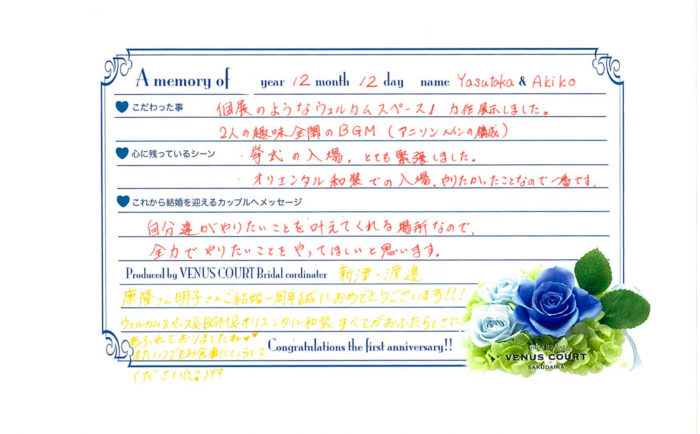 A memory of year 12 month 12 day name Yasutaka & Akiko
こだわった事 個展のようなウェルカムスペース♪ 力作展示しました。
2人の趣味全開のBGM (アニソンメインの構成)
心に残っているシーン ・挙式の入場。とても緊張しました。
・オリエンタル和装での入場。やりたかったことなので一番です。
これから結婚を迎えるカップルへメッセージ
自分達がやりたいことを叶えてくれる場所なので、
全力でやりたいことをやってほしいと思います。
Produced by VENUS COURT Bridal cordinater 新津・渡邉
康隆さん明子さんご結婚一周年誠におめでとうございます!!!
ウェルカムスペース&BGM&オリエンタル和装 すべてがおふたらしさに
あふれておりましたね♥♥
またいつでもお食事にいらして
ください(^^)
Congratulations the first anniversary!!
VENUS COURT
SAKUDAIRA